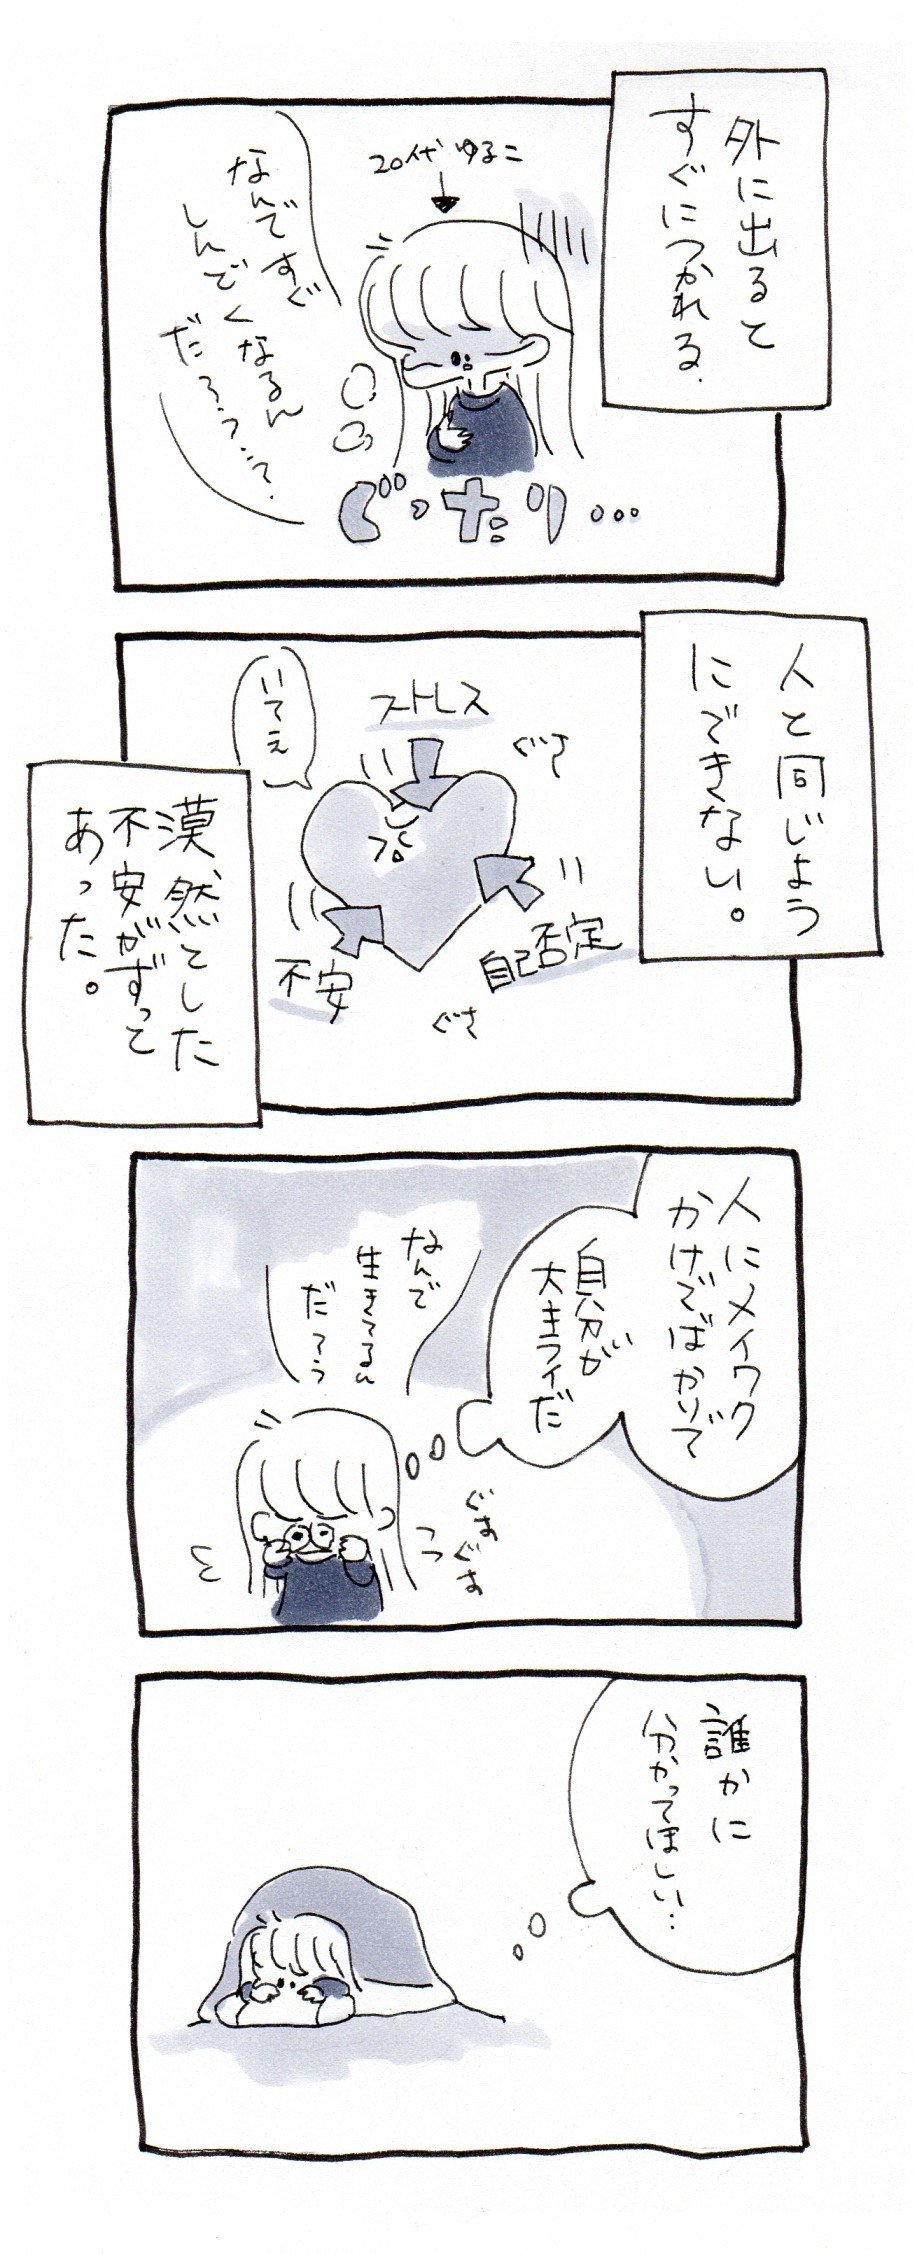 外に出ると
すぐにつかれる.
20代ゆるこ
なんですぐ
しんどくなるん
だろうって.
ぐったり...
人と同じよう
にできない。
ストレス
ぐさ
いてえ
自己否定
不安
ぐさ
漠然とした
不安がずって
あった。
人にメイワク
かけてばかりで
自分が
大キライだ
なんで
生きてるん
だろう
ぐす
ぐす
誰かに
分かってほしい…